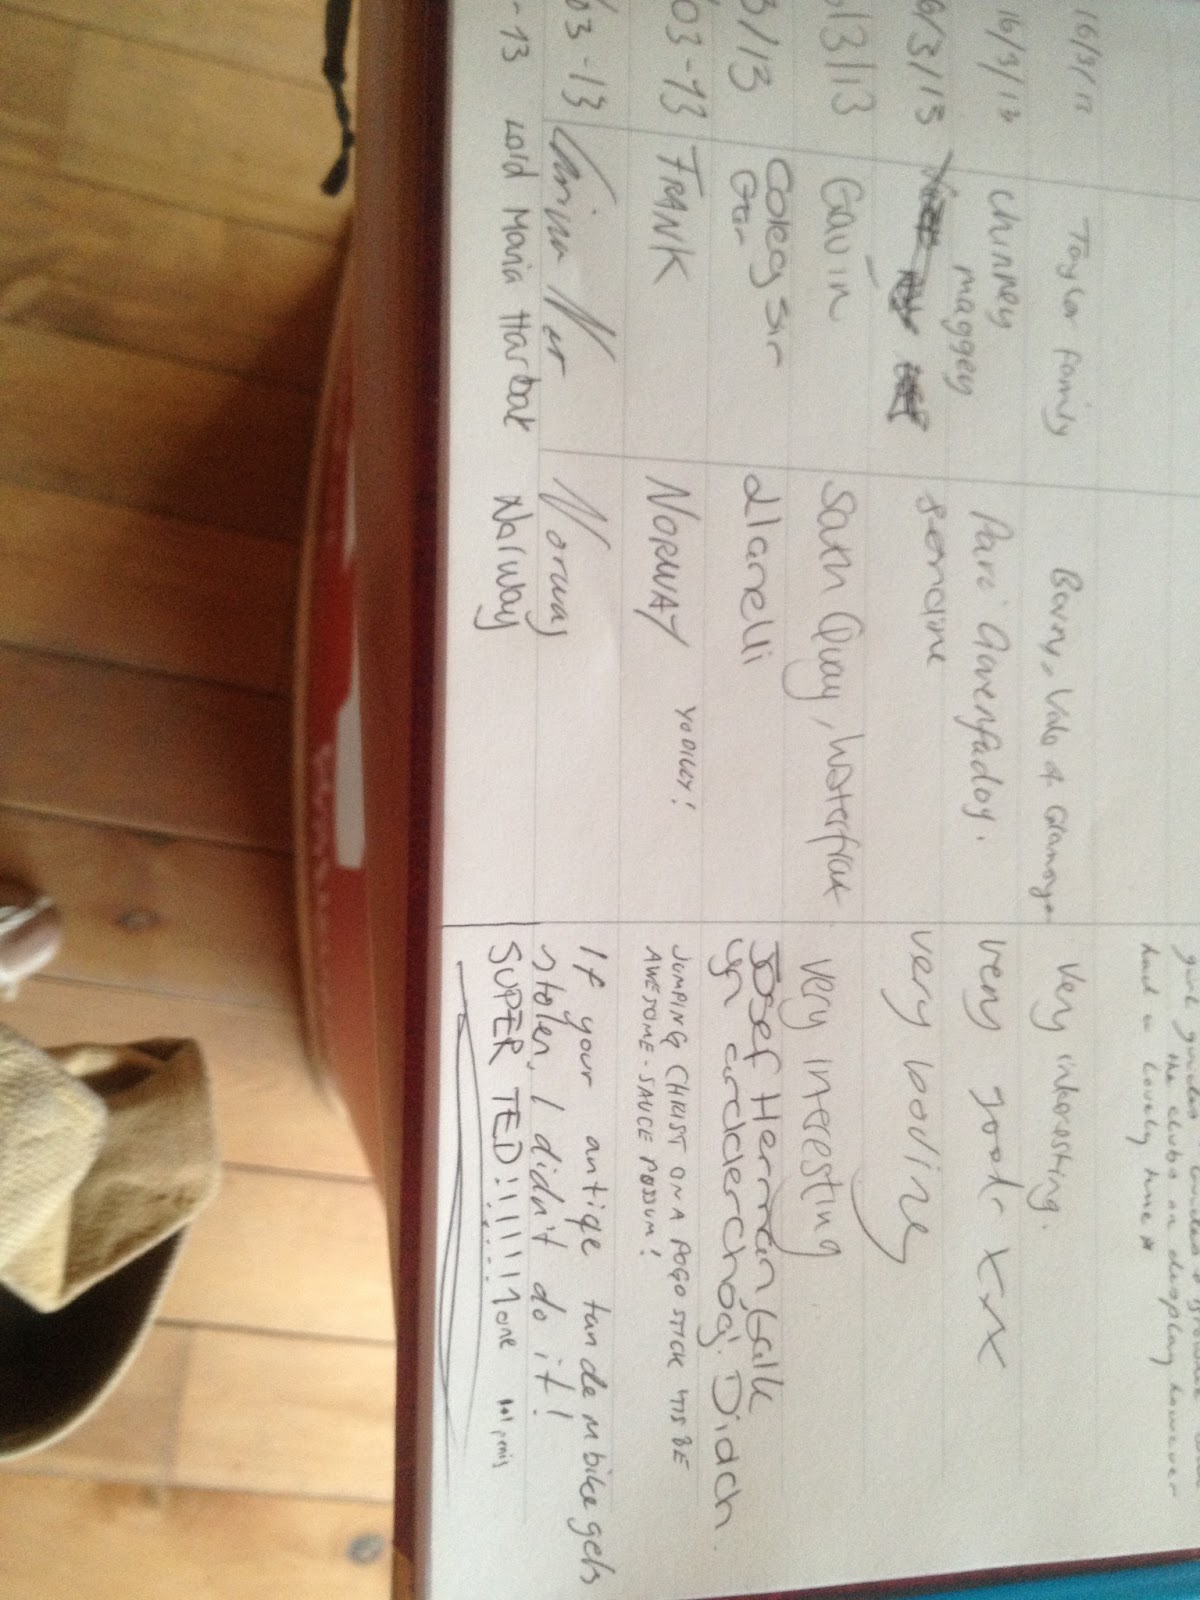 had a lovely time *
16/3/13 Taylor family Barry, Vale of Glamorgan Very interesting.
16/3/13 chinney maggey Parc Gwenfadog. very good xxx
6/3/13 Pendine very boring
/3/13 Gavin Sath Quay, Waterfrot very interesting
3/13 Coleg Sir Gar Llanelli Josef Herman (talk
yn ardderchog). Diolch.
03-13 FRANK NORWAY YODILLY! JUMPING CHRIST ON A POGO STICK THIS BE
AWESOME-SAUCE POSSUM!
03-13 Norway If your antiqe tandem bike gets
stolen, I didn't do it!
-13 Maria Norway SUPER TED!!!!!!!1one